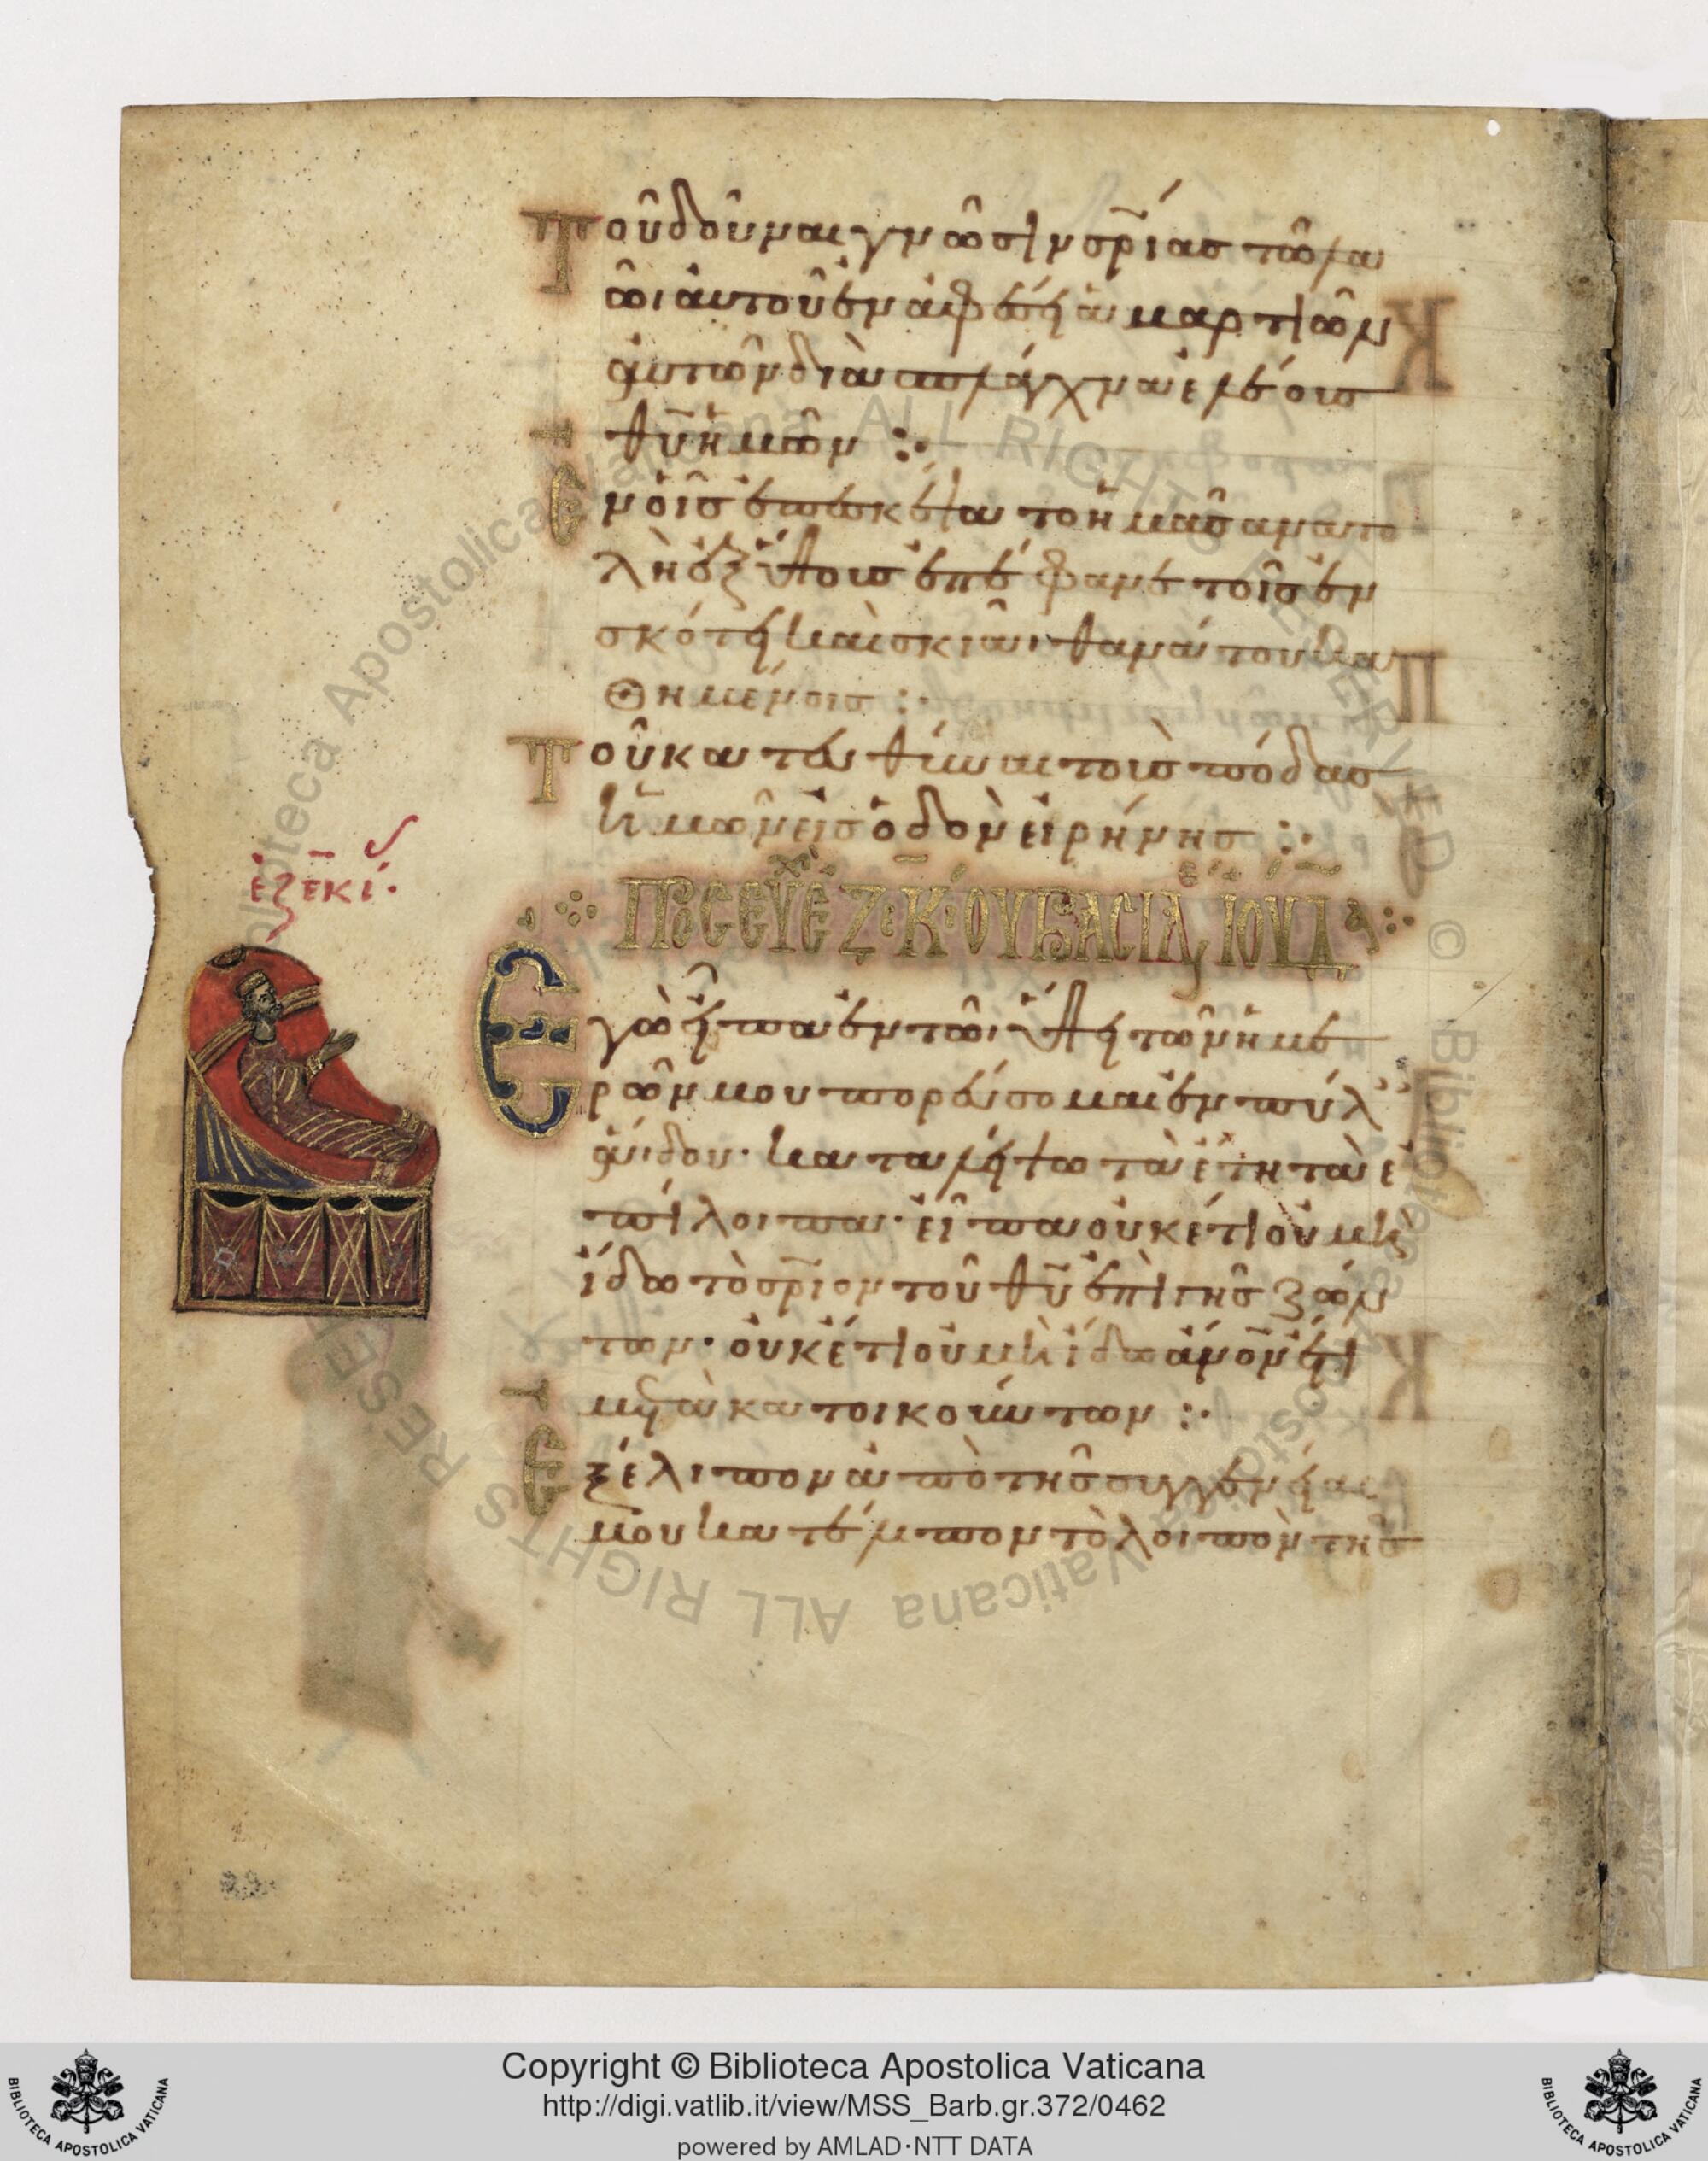 Τοῦ δοῦναι γνῶσιν σρ̅ίας τῶ λα
ῶι αὐτοῦ ἐν ἀφέσει ἁμαρτιῶν
αὐτῶν διὰ σπλάγχνα ἐλέους
θυ̅ ἡμῶν :·
Ἐν οἷς ἐπεσκέψατο ἡμᾶς ἀνατο
λὴ ἐξ ὕψους ἐπέφανε τοῖς ἐν
σκότει καὶ σκιᾶι θανάτου κα
θημένοις :·
Τοῦ κατευθῦναι τοὺς πόδας
ἡμῶν εἰς ὁδὸν εἰρήνης :·
ἐζεκί.
ΠΡΟΣΕΥΧῈ ἘΖΕΚΊΟΥ ΒΑΣΙΛ ἸΟΥΔ
Ἐγὼ εἶπα ἐν τῶι ὕψει τῶν ἡμε
ρῶν μου πορεύσομαι ἐν πύλ
ἅιδου· καταλείψω τὰ ἔτη τὰ ἐ
πίλοιπα· εἶπα οὐκέτι οὐ μὴ
ἴδω τὸ σρ̅ιον τοῦ θυ̅ ἐπὶ γῆς ζών
των· οὐκέτι οὐ μὴ ἴδω ἀνο̅ν ἔτι
μετὰ κατοικούντων :·
Ἐξέλιπον ἀπὸ τῆς συγγενείας
μου κατέλιπον τὸ λοιπὸν τῆς
Copyright © Biblioteca Apostolica Vaticana
http://digi.vatlib.it/view/MSS_Barb.gr.372/0462
powered by AMLAD·NTT DATA
BIBLIOTECA APOSTOLICA VATICANA
BIBLIOTECA APOSTOLICA VATICANA